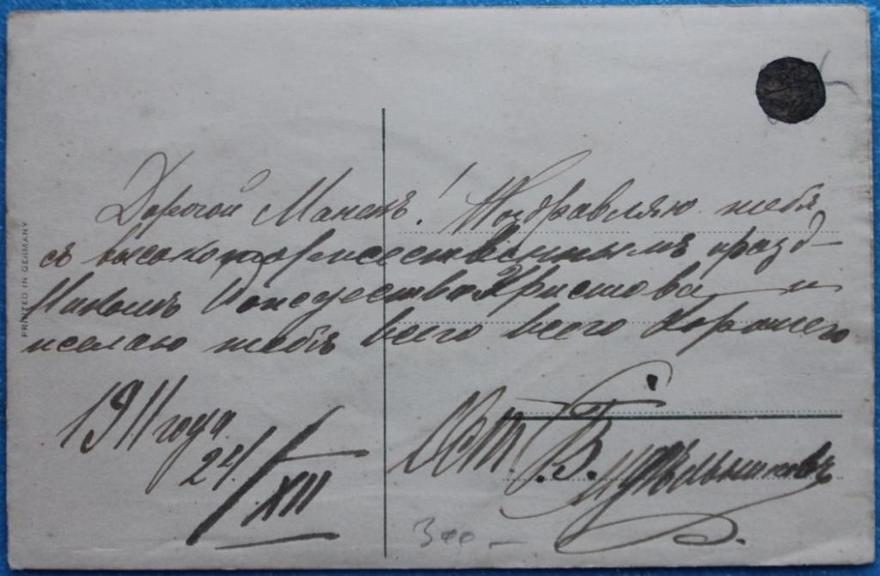 Дорогой Манекъ! Поздравляю тебя
съ высокоторжественнымъ празд-
никомъ Рождества Христова и
желаю тебѣ всего всего хорошего
1911 года
24/XII
PRINTED IN GERMANY
300 –